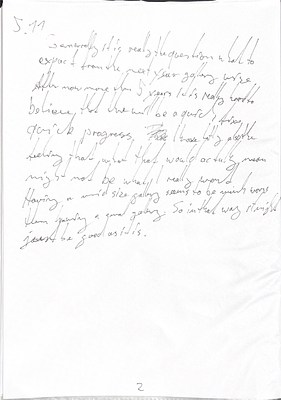 5.11
Generally it is really the question what to
expect from the next year galery wise.
After now more than 5 years it is really hard to
believe, that there will be a quick,
quick progress. I have
feeling that what that would actually mean
might not be what I really want.
Having a mid size galery seems to be much worse
than having a small galery. So in that way it might
just be good as it is.
2